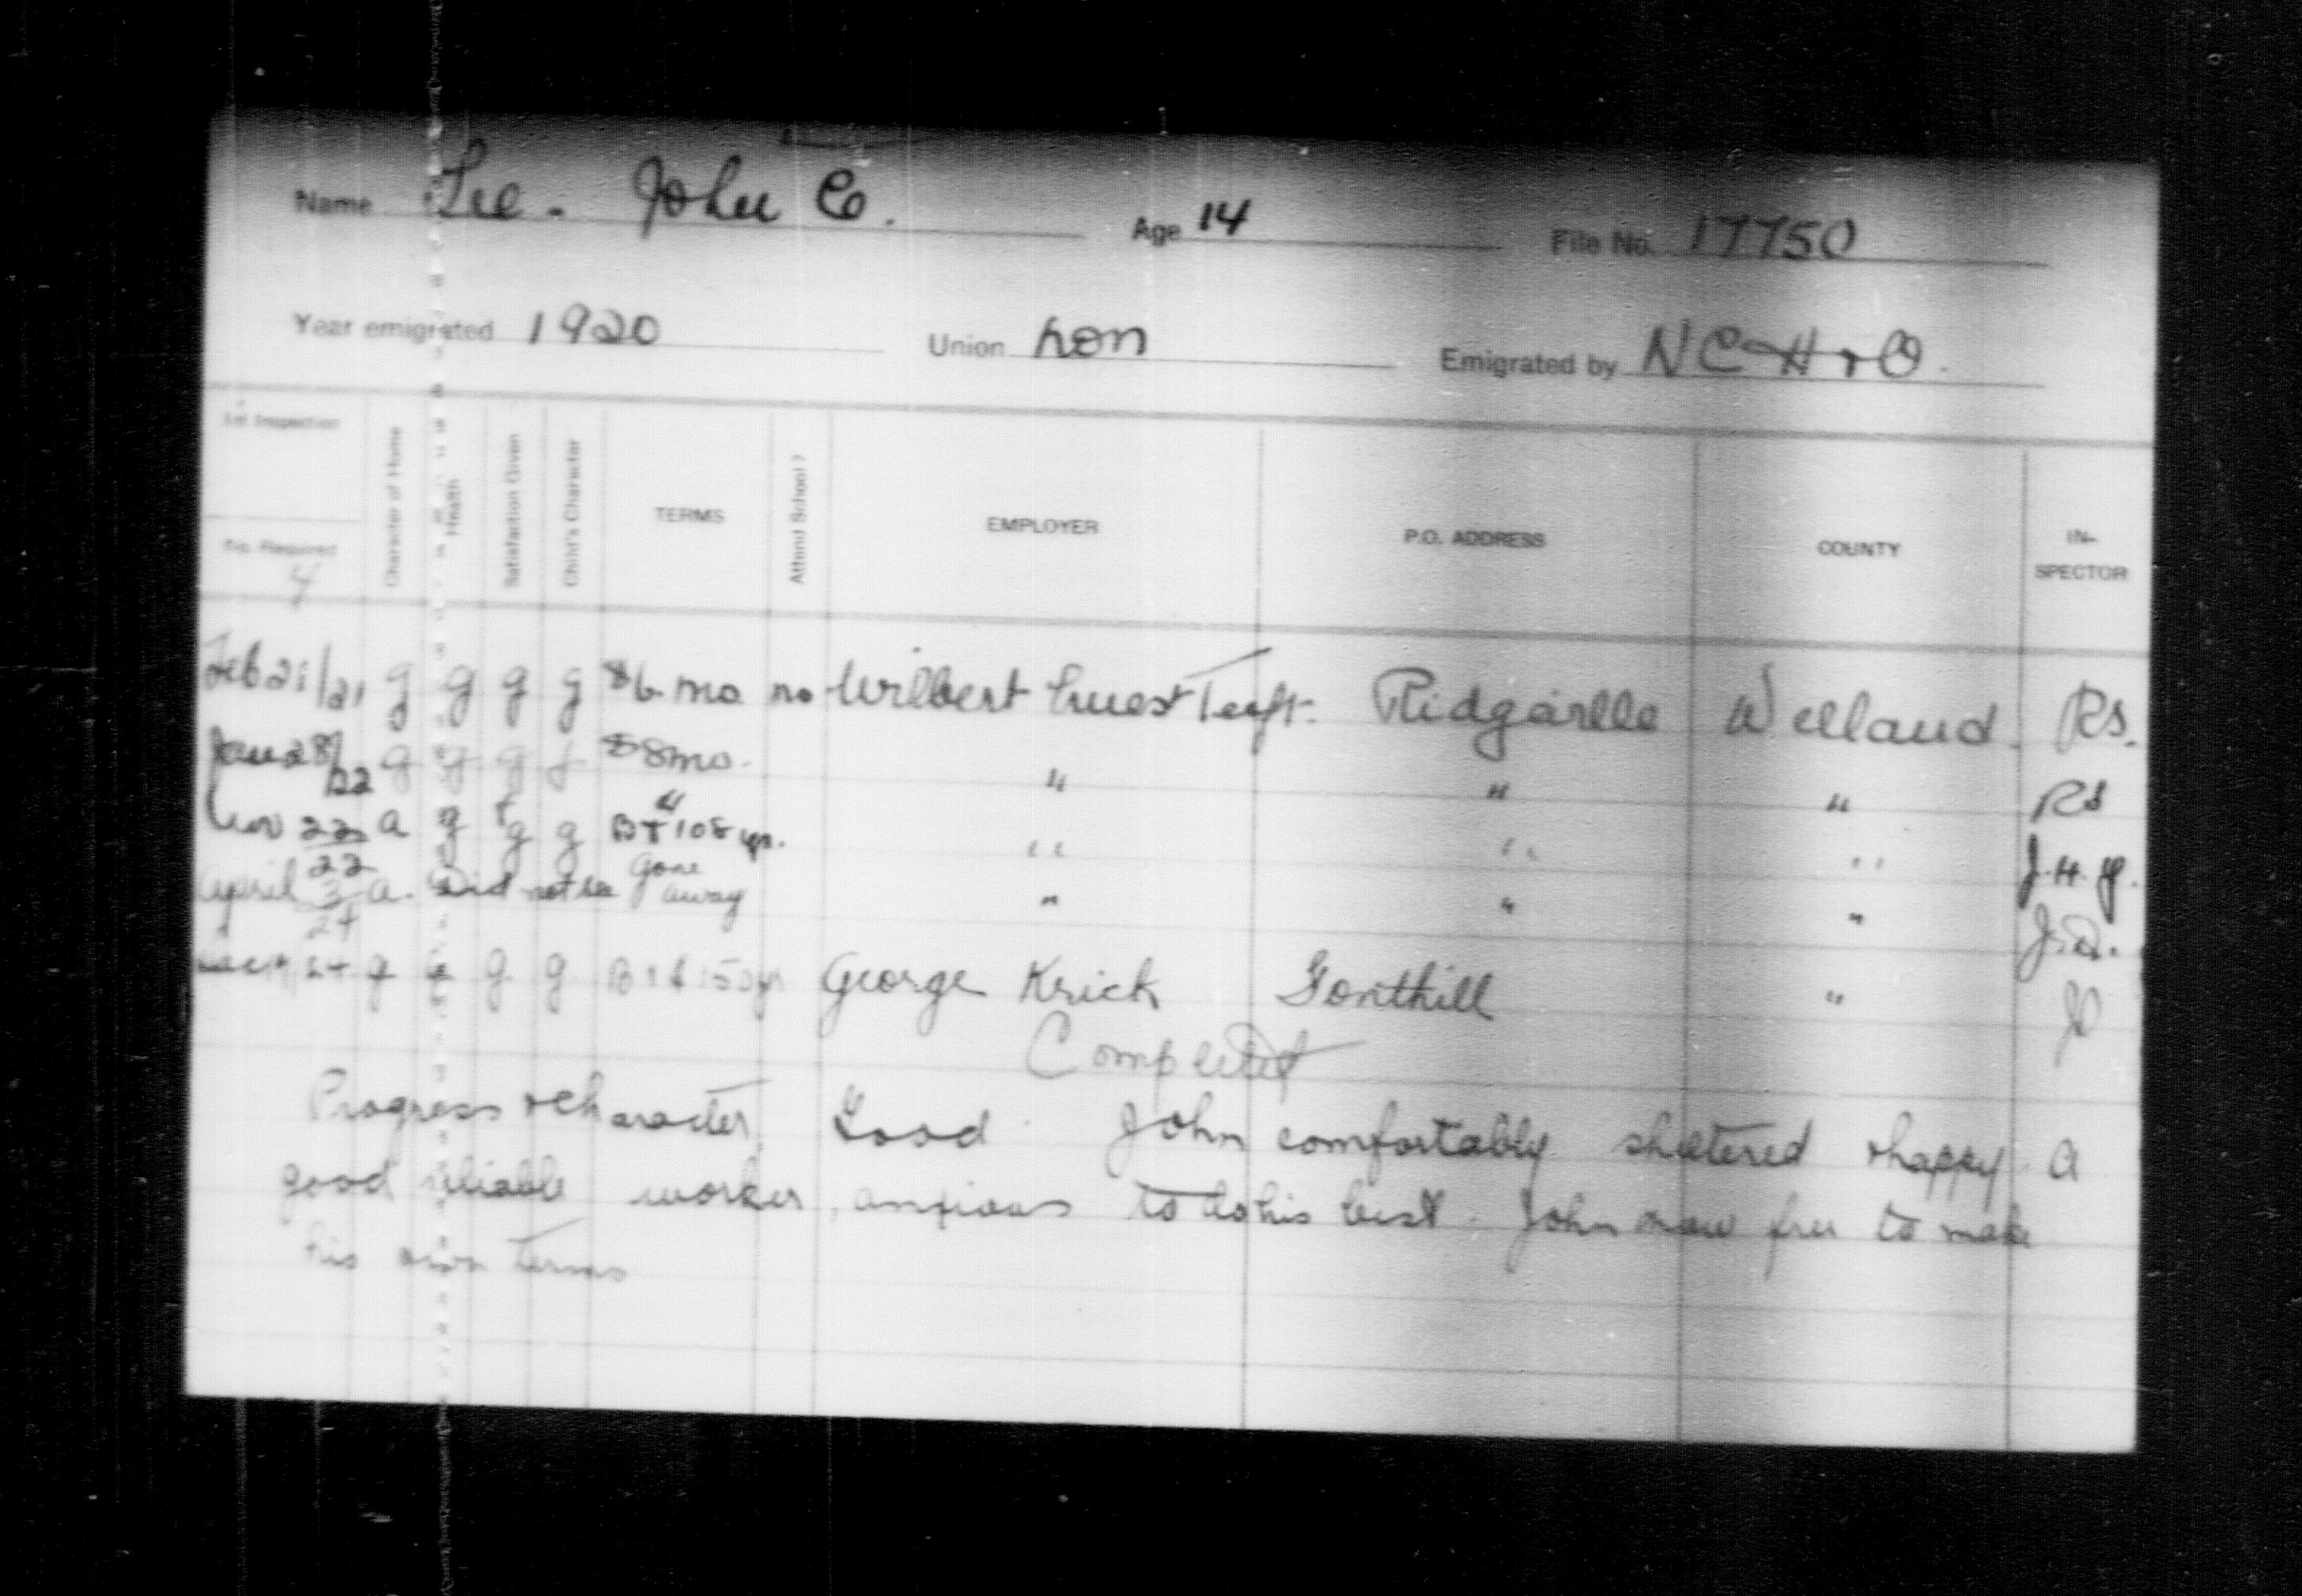 Name Lee. John E. Age 14 File No. 17750
Year emigrated 1920 Union Lon Emigrated by NCH & O.
1st Inspection
No. Required
4
Character of Home
Health
Satisfaction Given
Child's Character
TERMS
Attend School?
EMPLOYER
P.O. ADDRESS
COUNTY
IN-
SPECTOR
Feb 21/21 g g g g $6 mo no Wilbert Ernest Teeft. Ridgeville Welland. RS.
Jan 28/22 g g g g $8 mo. " " " RS
Nov 22/22 a g g g B+ $108 yr. " " " J.H.
April 3/24 a. Did not see gone away " " " J.D.
24 g g g g B & $150 yr George Krick Fonthill "
Completed
Progress & Character, Good. John comfortably sheltered & happy. A
good reliable worker, anxious to do his best. John now free to make
his own terms